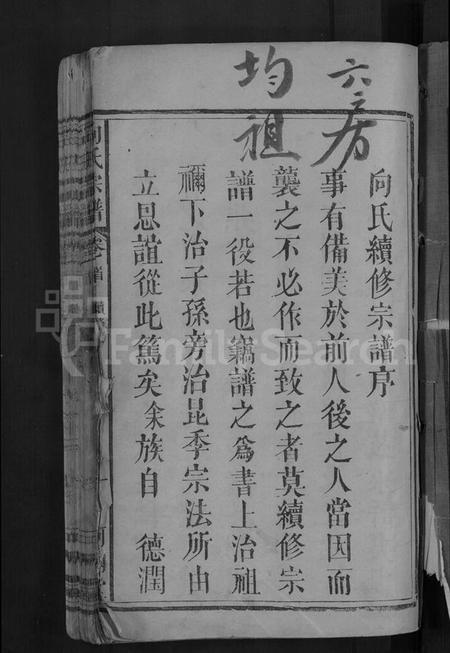 六房
均祖
向氏續修宗譜序
事有備美於前人後之人當因而
襲之不必作而致之者莫續修宗
譜一役若也竊譜之爲書上治祖
禰下治子孫旁治昆季宗法所由
立恩誼從此篤矣余族自 德潤
向氏宗譜 卷之首
FamilySearch